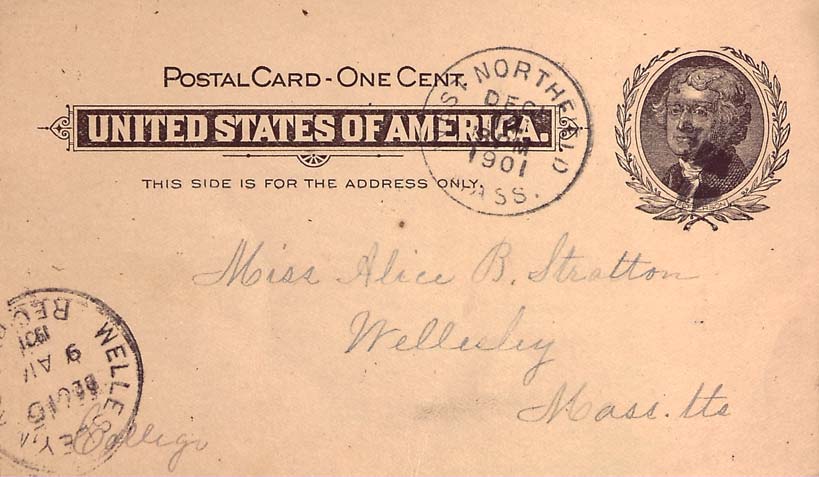 POSTAL CARD - ONE CENT.
UNITED STATES OF AMERICA.
THIS SIDE IS FOR THE ADDRESS ONLY.
NORTHFIELD
DEC
1901
MASS.
JEFFERSON
Miss Alice B. Stratton
Wellesley
Mass. tts
College
WELLESLEY
REC'D
1901
9 AM
DEC 10